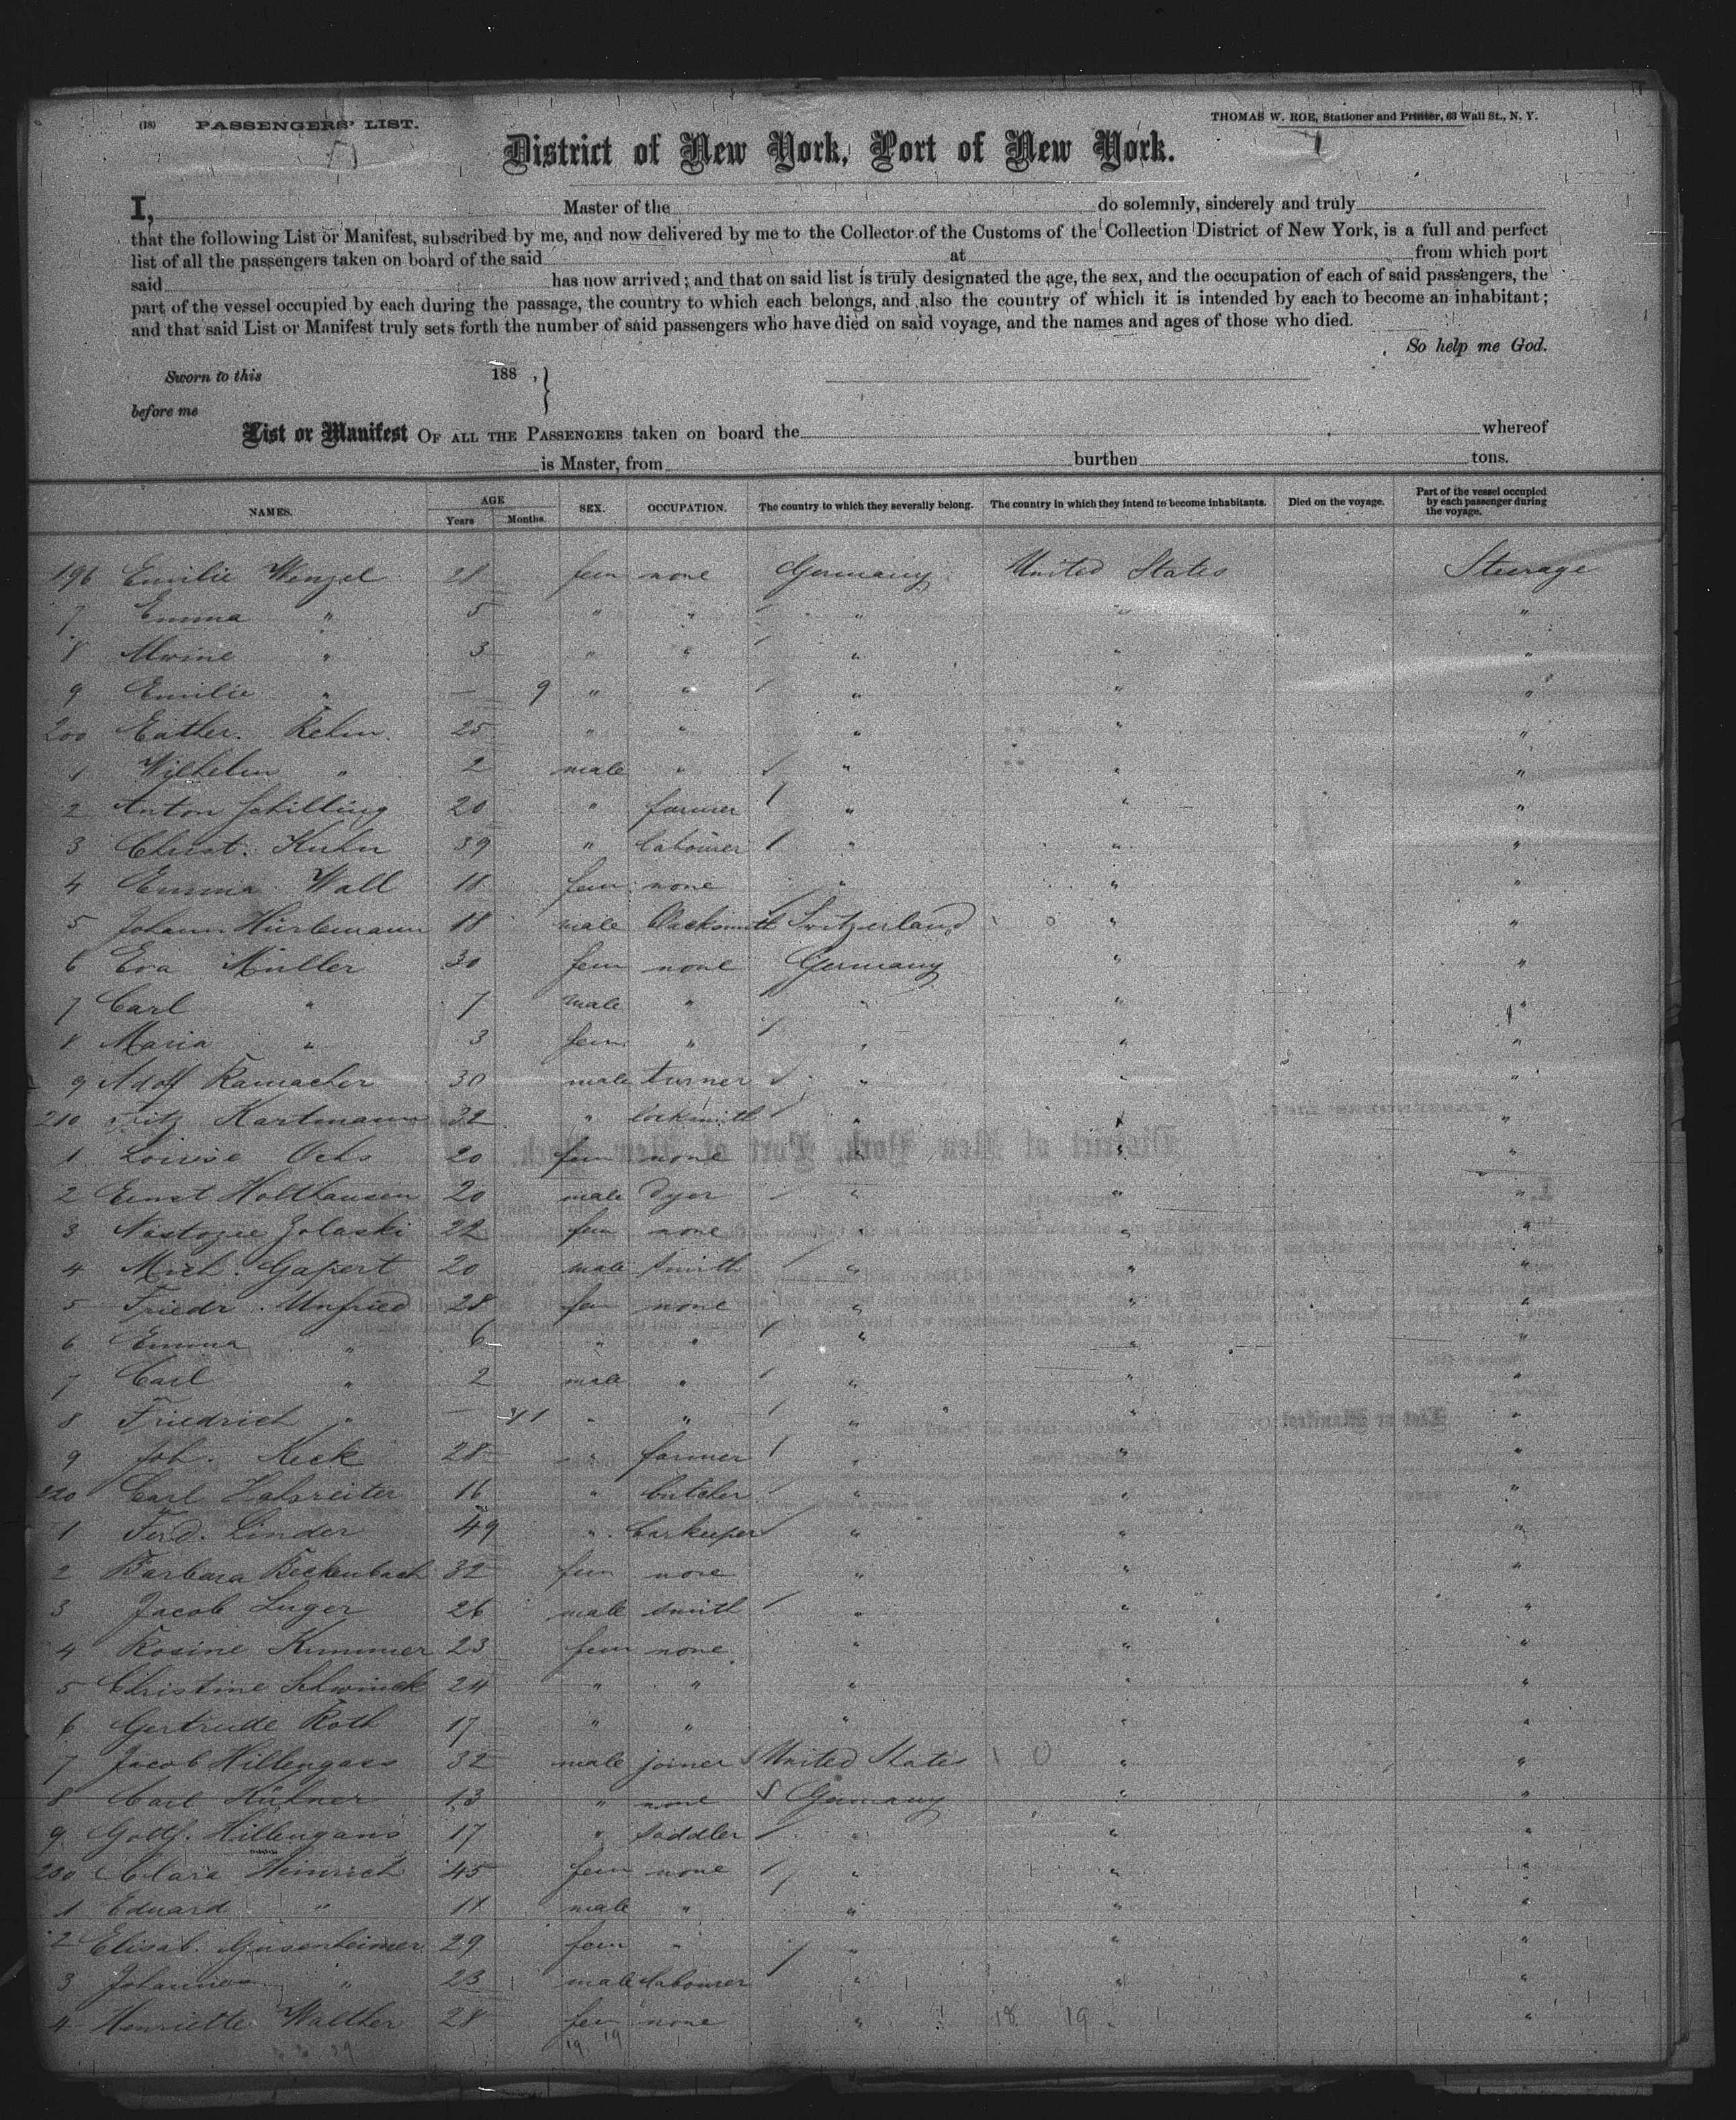 (18) PASSENGERS' LIST.
THOMAS W. ROE, Stationer and Printer, 63 Wall St., N. Y.
District of New York, Port of New York.
I, Master of the do solemnly, sincerely and truly
that the following List or Manifest, subscribed by me, and now delivered by me to the Collector of the Customs of the Collection District of New York, is a full and perfect
list of all the passengers taken on board of the said at from which port
said has now arrived; and that on said list is truly designated the age, the sex, and the occupation of each of said passengers, the
part of the vessel occupied by each during the passage, the country to which each belongs, and also the country of which it is intended by each to become an inhabitant;
and that said List or Manifest truly sets forth the number of said passengers who have died on said voyage, and the names and ages of those who died.
So help me God.
Sworn to this 188 ,
before me
List or Manifest OF ALL THE PASSENGERS taken on board the whereof
is Master, from burthen tons.
NAMES. AGE Years Months. SEX. OCCUPATION. The country to which they severally belong. The country in which they intend to become inhabitants. Died on the voyage. Part of the vessel occupied by each passenger during the voyage.
196 Emilie Wenzel 28 fem none Germany United States Steerage
7 Emma " 5 " " " " "
8 Alwine " 3 " " " " "
9 Emilie " — 9 " " " " "
200 Kehm 25 " " " " "
1 Wilhelm " 2 male " " " "
2 Anton Schilling 20 " farmer " " "
3 Christ. Kuhn 39 " labourer " " "
4 Emma Wall 18 fem none " " "
5 Johann Hürlemann 18 male blacksmith Switzerland " "
6 Eva Müller 30 fem none Germany " "
7 Carl " 7 male " " " "
8 Maria " 3 fem " " " "
9 Adolf Ramacher 30 male turner " " "
210 Fritz Hartmann 32 " locksmith " " "
1 Louise Ochs 20 fem none " " "
2 Ernst Holthausen 20 male dyer " " "
3 Zolaski 22 fem none " " "
4 Mich. Gapert 20 male smith " " "
5 Friedr. Unfried 28 fem none " " "
6 Emma " 6 " " " " "
7 Carl " 2 male " " " "
8 Friedrich " — 11 " " " " "
9 Joh. Keck 28 " farmer " " "
220 Carl Halsreiter 16 " butcher " " "
1 Ferd. Linder 49 " barkeeper " " "
2 Barbara Beckenbach 32 fem none " " "
3 Jacob Luger 26 male smith " " "
4 Rosine Kummer 23 fem none " " "
5 Christine Schwinck 24 " " " " "
6 Gertrude Roth 17 " " " " "
7 Jacob Hillengass 32 male joiner United States " "
8 Carl Hühner 13 " none Germany " "
9 Gottf. Hillengass 17 " saddler " " "
230 Clara Heinrich 45 fem none " " "
1 Eduard " 11 male " " " "
2 Elisab. Gusenheimer 29 fem " " " "
3 Johannes " 23 male labourer " " "
4 Henriette Walther 28 fem none " 18 19 "
19 19